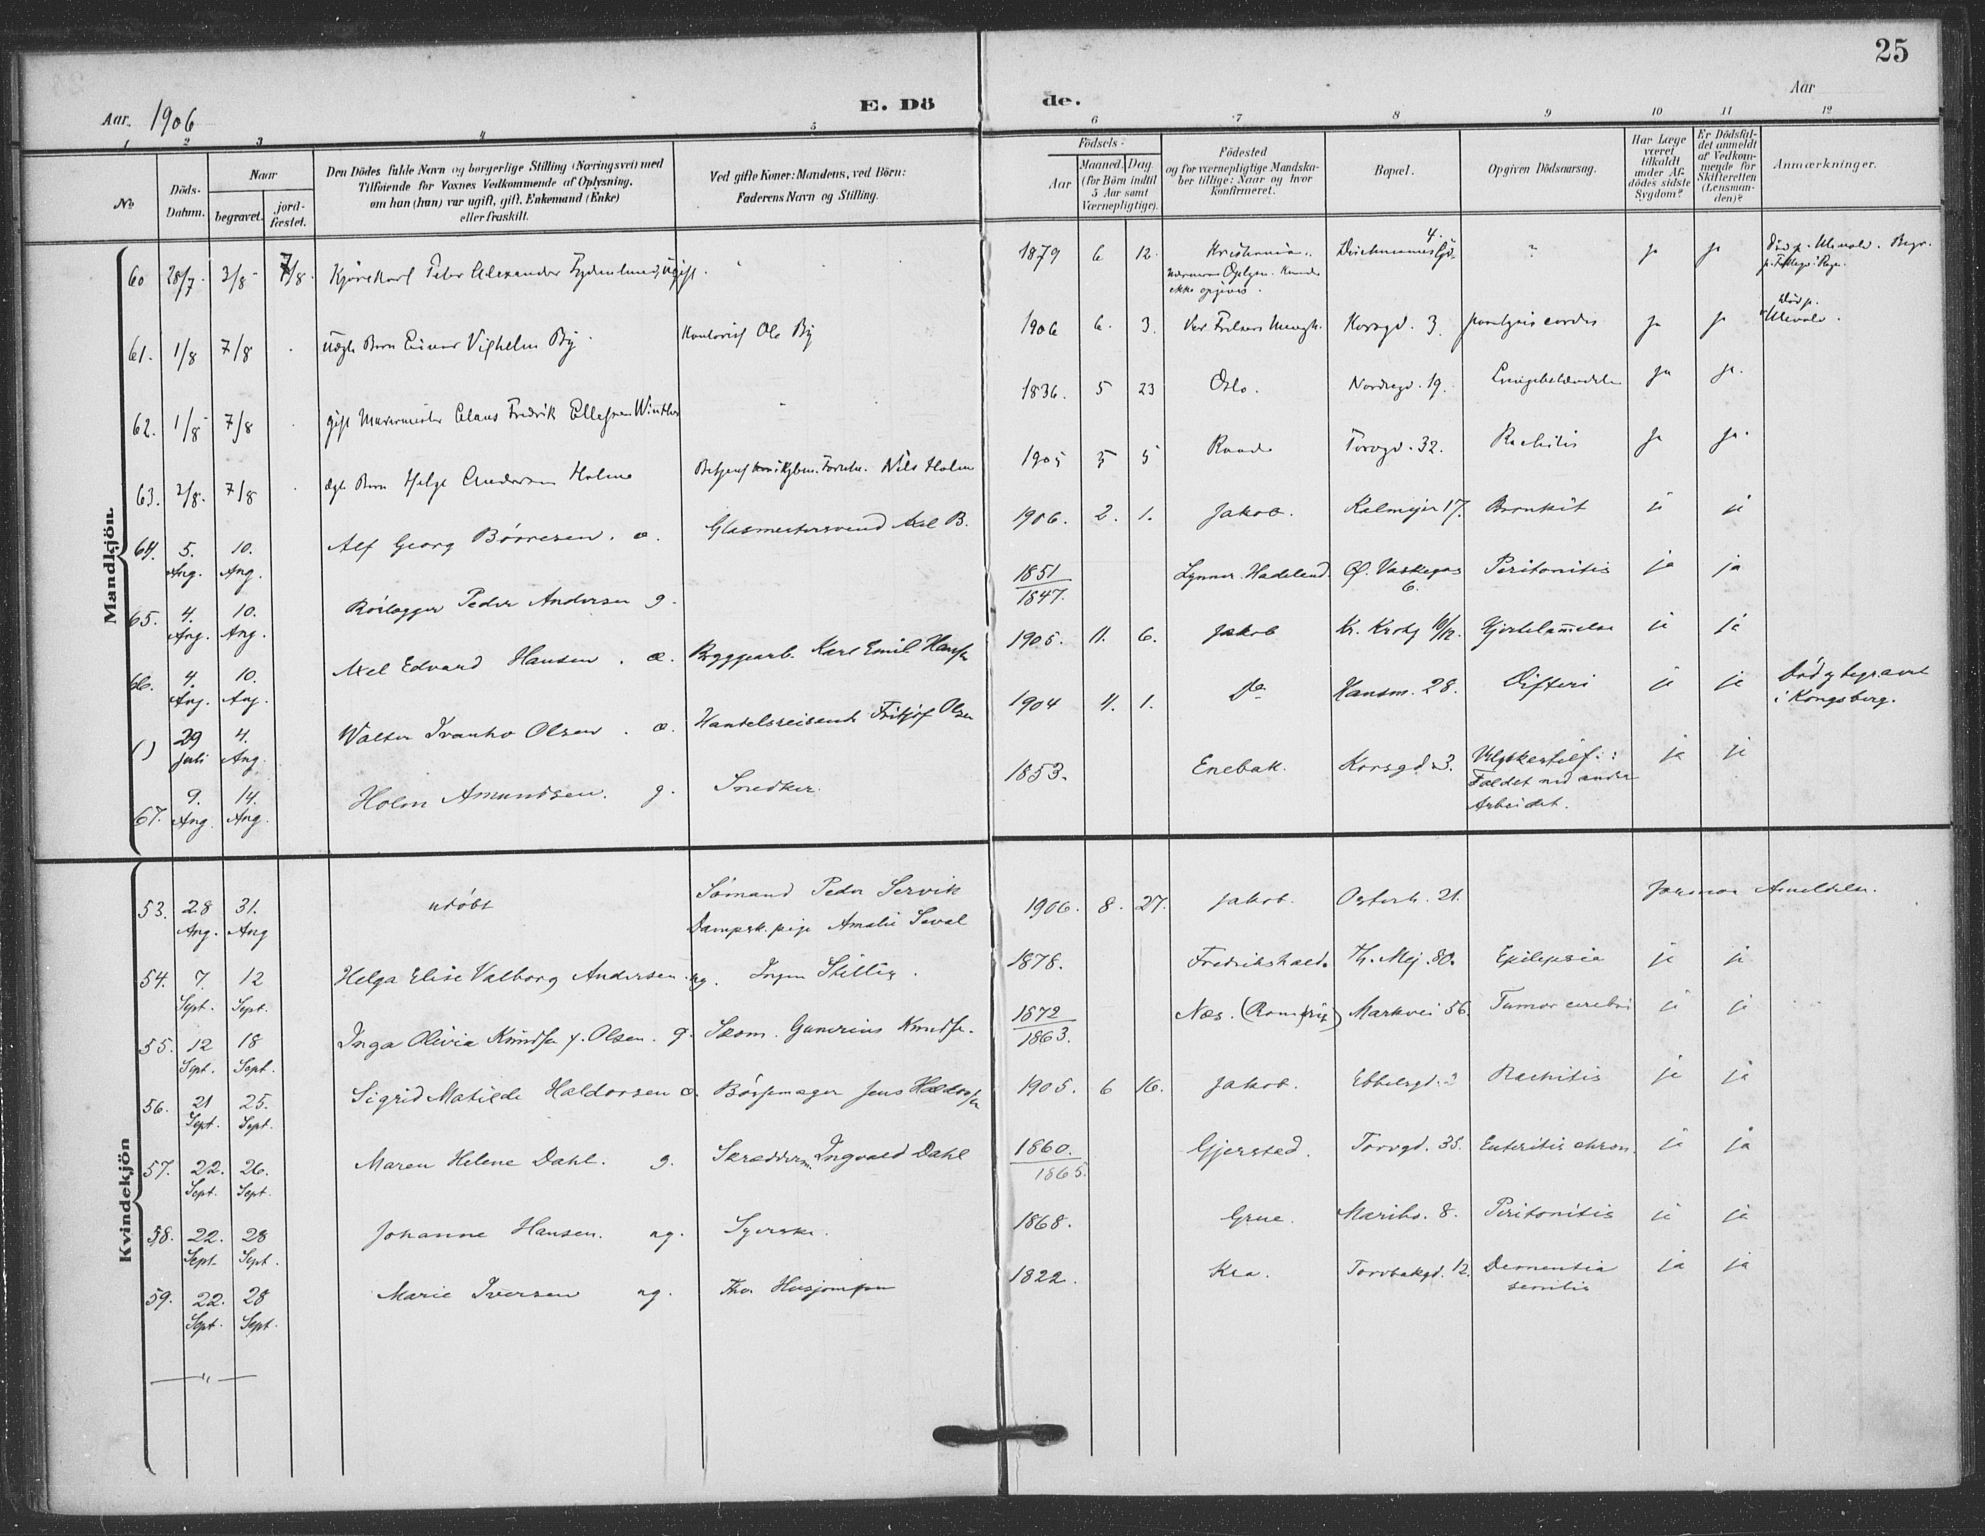 25
Aar. 1906
E. Dö
de.
Aar
1 2 3 4 5 6 7 8 9 10 11 12
No
Döds-
Datum.
Naar
begravet.
jord-
fæstet.
Den Dödes fulde Navn og borgerlige Stilling (Næringsvei) med
Tilföiende for Voxnes Vedkommende af Oplysning,
om han (hun) var ugift, gift, Enkemand (Enke)
eller fraskilt.
Ved gifte Koner: Mandens, ved Börn:
Faderens Navn og Stilling.
Födsels-
Aar
Maaned. Dag.
(for Börn indtil
5 Aar samt
Værnepligtige).
Födested
og for værnepligtige Mandska-
ber tillige: Naar og hvor
konfirmeret.
Bopæl.
Opgiven Dödsaarsag.
Har Læge
været
tilkaldt
under Af-
dödes sidste
Sygdom?
Er Dödsfal-
det anmeldt
af Vedkom-
mende for
Skifteretten
(Lensman-
den)?
Anmærkninger.
Mandkjön.
60 28/7 3/8 7/8 Kjörekarl Peter Alexander ugift 1879 6 12 Kristiania ? ja ja Död p. Ullevold. Begr.
nærmere Oplysn. kunde
ikke opgives.
61. 1/8 7/8 uægte Barn Einar Vilhelm By Kontorist Ole By 1906 6. 3. Vor Frelsers Menigh. Korsgd. 3. paralysis cordis ja ja Död p.
Ullevold.
62. 1/8 7/8 gift Murermester Claus Fredrik Ellefsen Winther 1836. 5 23 Oslo. Nordregd. 19. Lungebetændelse ja ja.
63. 2/8. 7/8 ægte Barn Helge Andersen Holm Nils Holm 1905 5 5 Raade Torvgd. 32. Rachitis ja ja.
64. 5. Aug. 10. Aug. Alf Georg Börresen. æ. Glasmestersvend Axel B. 1906. 2. 1. Jakob. Kalmeyer 17. Bronkit ja ja
65. 4. Aug. 10. Aug. Rörlægger Peder Andersen g. 1851/1847. Lynner. Hadeland Ø. Vaskegang 6. Peritonitis ja ja
66. 4. Aug. 10. Aug. Axel Edvard Hansen. æ. Bryggearb. Karl Emil Hansen 1905. 11. 6. Jakob Kr. Krohg 10/12. Hjertelammelse ja ja
( ) 29 Juli 4. Aug. Walter Ivanho Olsen. æ. Handelsreisende Fritjof Olsen 1904 4. 1. do Hausm. 28. Difteri ja ja Död og begravet
i Kongsberg.
67. 9. Aug. 14. Aug. Holm Amundsen. g. Snedker. 1853. Enebak. Korsgd. 3. Ulykkestilf.:
Faldet ned under
Arbeidet. ja ja
Kvindekjön
53. 28 Aug. 31. Aug udöbt Sömand Peder Servik
Dampsk. pige Amalie Seval 1906. 8. 27. Jakob. Osterh. 21. Jormor Anmeldelse.
54. 7. Sept. 12 Sept. Helga Elise Valborg Andersen. ug. Ingen Stilling. 1878. Fredrikshald. Th. Mej. 80. Epilepsia ja ja
55. 12 Sept. 18 Sept. Inga Olivia Knudsen f. Olsen. g. Skom. Gunerius Knudsen. 1872/1863. Næs. (Romerike) Markvei 56. Tumor cerebri ja ja
56. 21 Sept. 25. Sept. Sigrid Matilde Haldorsen æ. Börsemager Jens Haldorsen 1905. 6 16. Jakob. Ebbelsgd. 3 Rachitis ja ja
57. 22. Sept. 26. Sept. Maren Helene Dahl. g. Skrædderm. Ingvald Dahl 1860./1865. Gjerstad. Torvgd. 35. Enteritis chron. ja ja
58. 22. Sept. 28 Sept. Johanne Hansen. ug. Syerske. 1868. Grue. Maribo. 8. Peritonitis ja ja
59. 22. Sept. 28 Sept. Marie Iversen ug. 1822. Kra. Torvbakgd. 12. Dementia
senilis ja ja